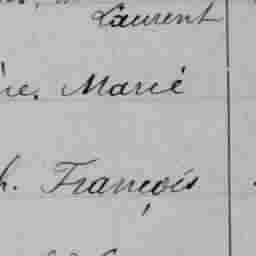 Laurent
re. Marie
h. François